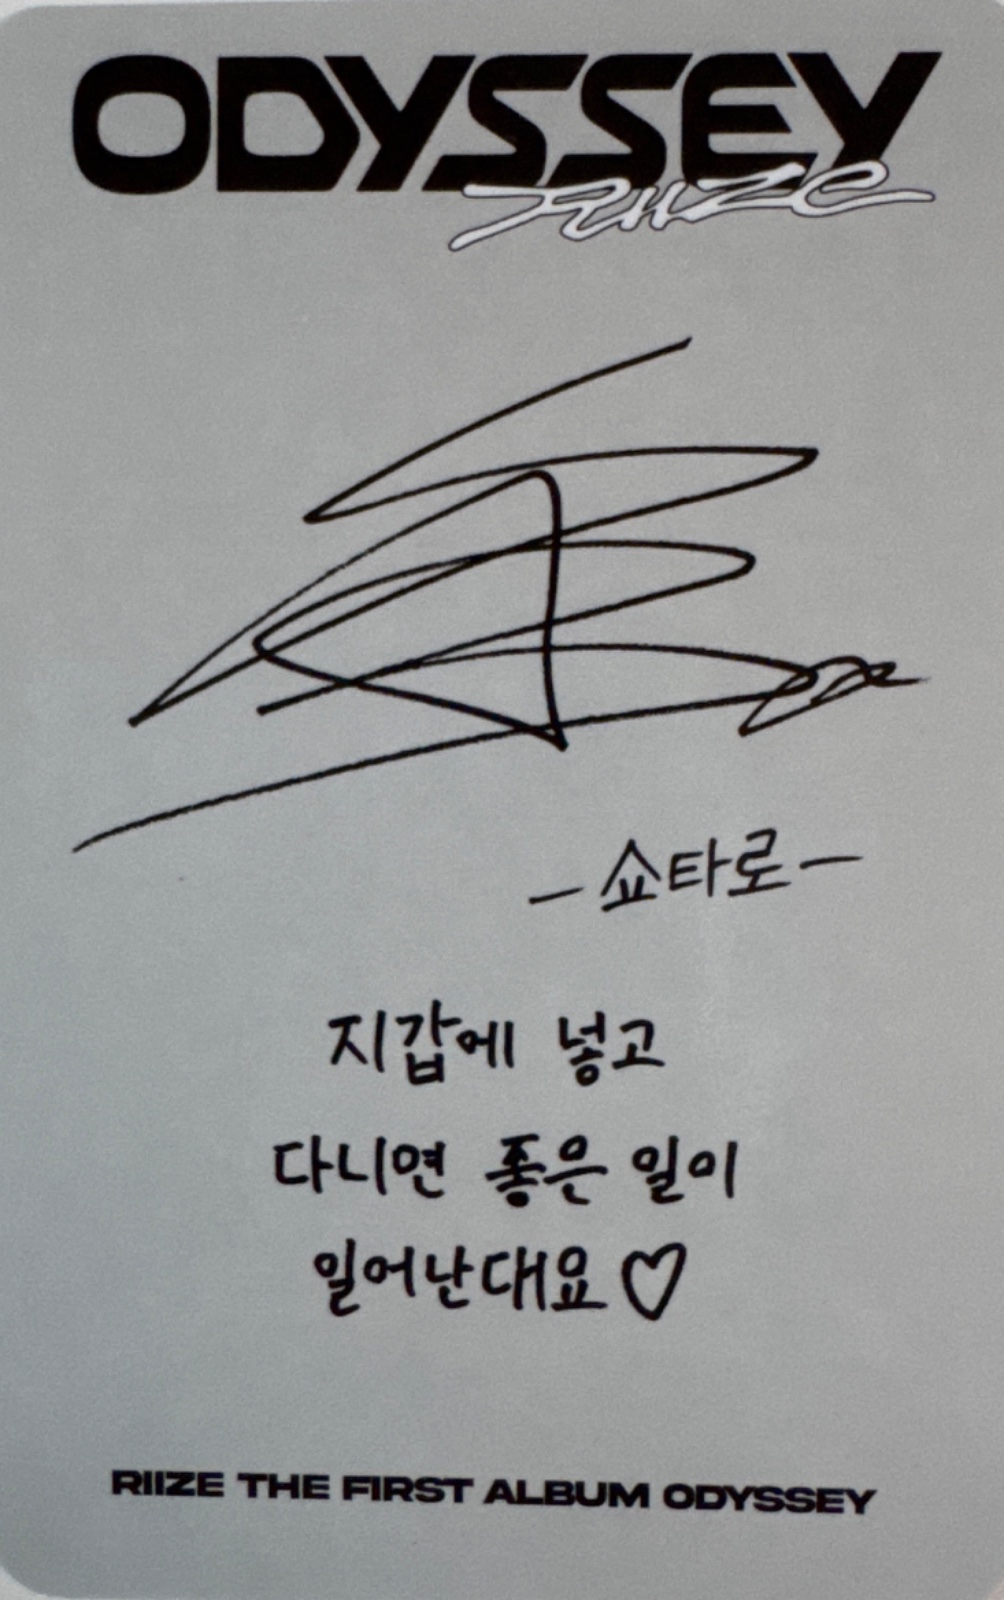 ODYSSEY
RIIZE
-쇼타로-
지갑에 넣고
다니면 좋은 일이
일어난대요♡
RIIZE THE FIRST ALBUM ODYSSEY